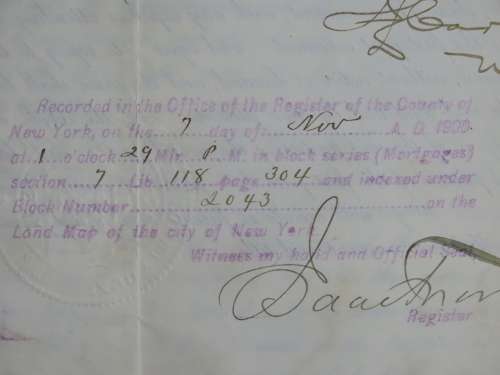 Recorded in the Office of the Register of the County of
New York, on the 7 day of Nov A. D. 1900
at 1 o'clock 29 Min. P M. in block series (Mortgages)
section 7 Lib. 118 page 304 and indexed under
Block Number 2043 on the
Land Map of the city of New York.
Witness my hand and Official Seal,
Isaac
Register